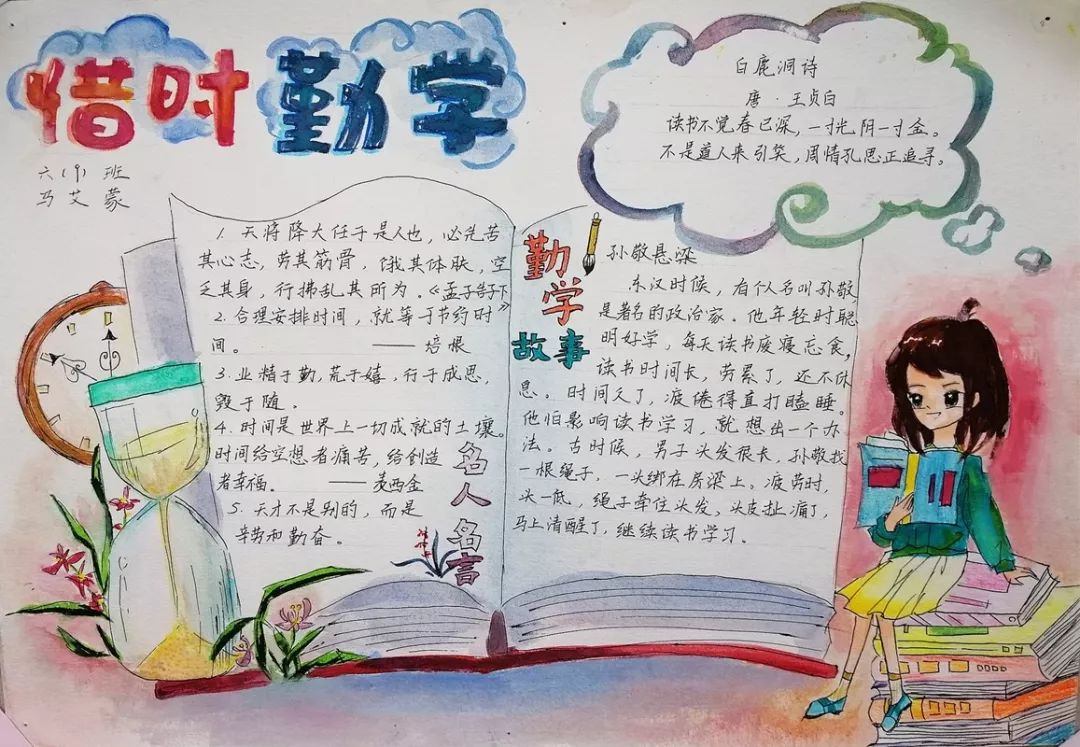 惜时勤学
六(9)班
马艾蒙
白鹿洞诗
唐·王贞白
读书不觉春已深，一寸光阴一寸金。
不是道人来引笑，周情孔思正追寻。
1. 天将降大任于是人也，必先苦
其心志，劳其筋骨，饿其体肤，空
乏其身，行拂乱其所为。《孟子·告子下》
2. 合理安排时间，就等于节约时
间。——培根
3. 业精于勤，荒于嬉，行于成思，
毁于随。
4. 时间是世界上一切成就的土壤。
时间给空想者痛苦，给创造
者幸福。——麦西金
5. 天才不是别的，而是
辛劳和勤奋。
名人名言
勤学
故事
孙敬悬梁
东汉时候，有个人名叫孙敬
是著名的政治家。他年轻时聪
明好学，每天读书废寝忘食，
读书时间长，劳累了，还不休
息。时间久了，疲倦得直打瞌睡。
他怕影响读书学习，就想出一个办
法。古时候，男子头发很长，孙敬找
一根绳子，一头绑在房梁上。疲劳时，
头一低，绳子牵住头发，头皮扯痛了，
马上清醒了，继续读书学习。